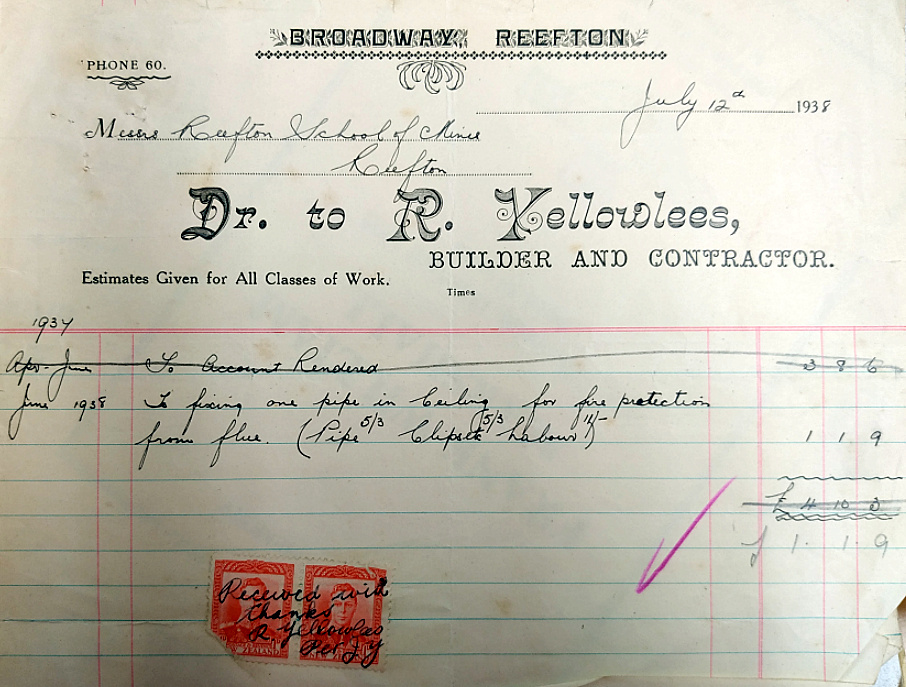 BROADWAY, REEFTON
'PHONE 60.
July 12th 1938
Messrs Reefton School of Mines
Reefton
Dr. to R. Yellowlees,
BUILDER AND CONTRACTOR.
Estimates Given for All Classes of Work.
Times
1937
Apr - June To Account Rendered 3 8 6
June 1938 To fixing one pipe in Ceiling for fire protection
from flue. (Pipe 5/3 Clips etc 5/3 Labour 11/-) 1 1 9
£ 4 10 3
£ 1 . 1 . 9
Received with
thanks
R. Yellowlees
Per J. Y